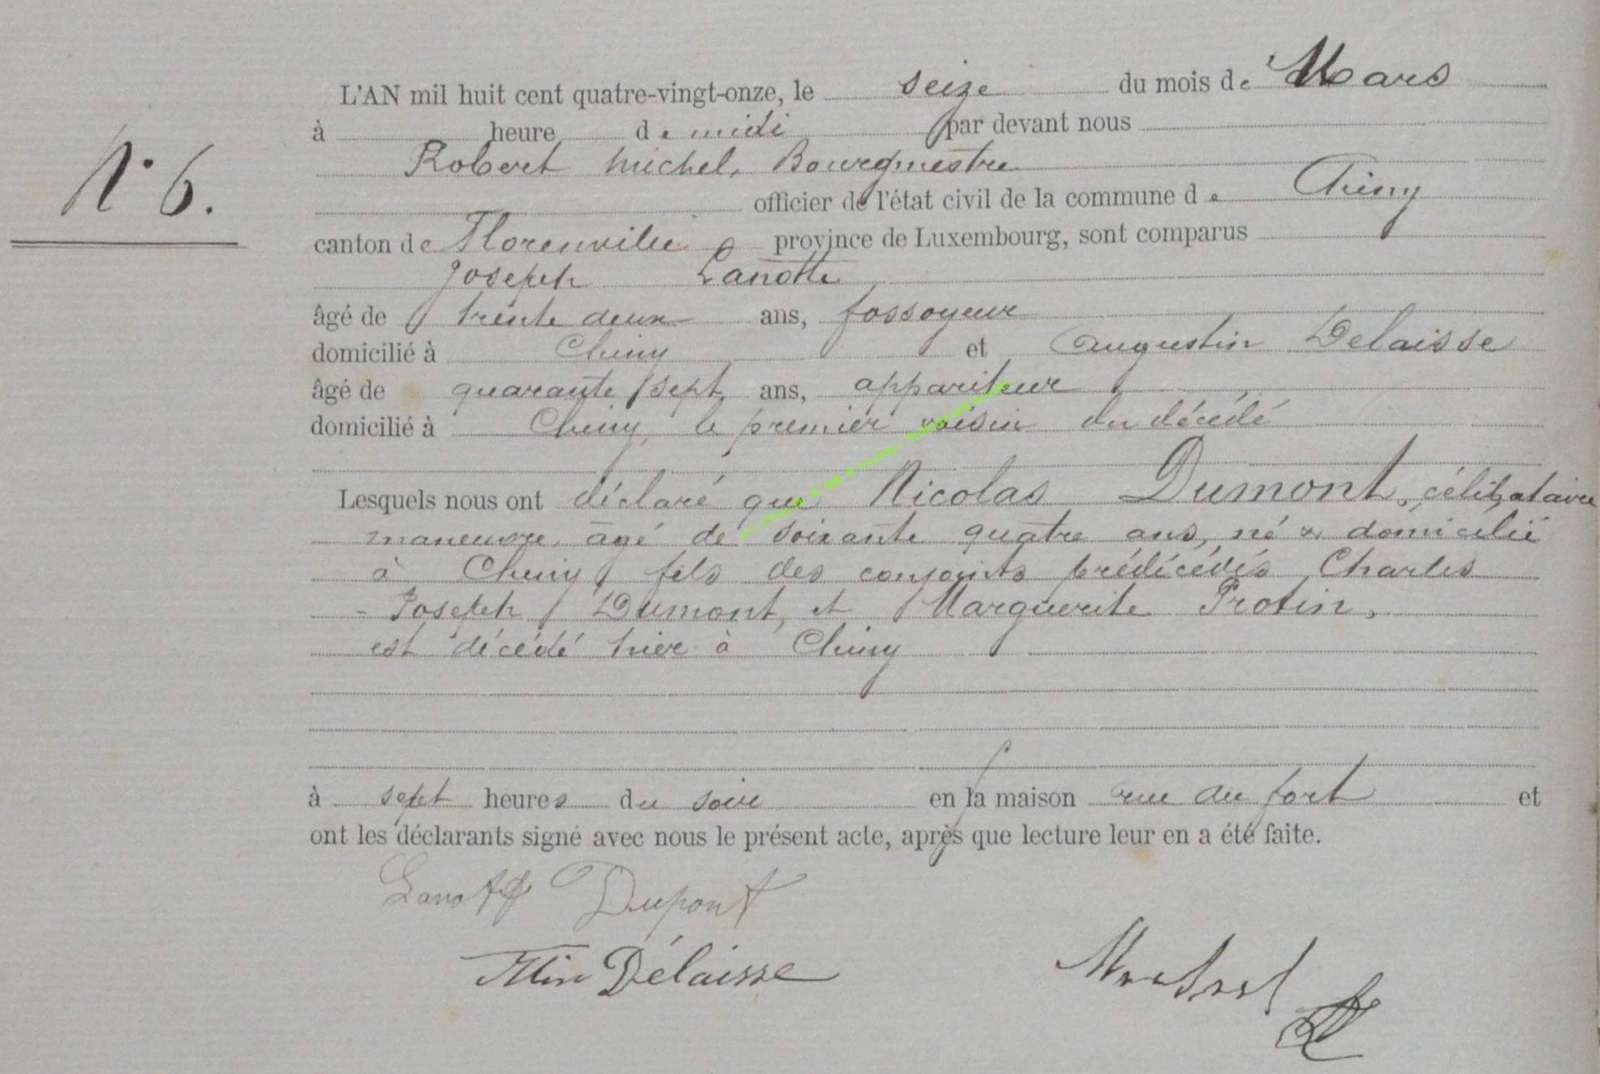 N° 6.
L'AN mil huit cent quatre-vingt-onze, le seize du mois de Mars
à heure de midi par devant nous
Robert Michel, Bourgmestre
officier de l'état civil de la commune de Chiny
canton de Florenville province de Luxembourg, sont comparus
Joseph Lanotte
âgé de trente deux ans, fossoyeur
domicilié à Chiny et Augustin Delaisse
âgé de quarante sept ans, appariteur
domicilié à Chiny, le premier voisin du décédé
Lesquels nous ont déclaré que Nicolas Dumont, célibataire
maneuvre, âgé de soixante quatre ans, né & domicilié
à Chiny, fils des conjoints prédécédés Charles
-Joseph Dumont, et Marguerite Protin,
est décédé hier à Chiny
à sept heures du soir en la maison rue du fort et
ont les déclarants signé avec nous le présent acte, après que lecture leur en a été faite.
Dupont
Délaisse